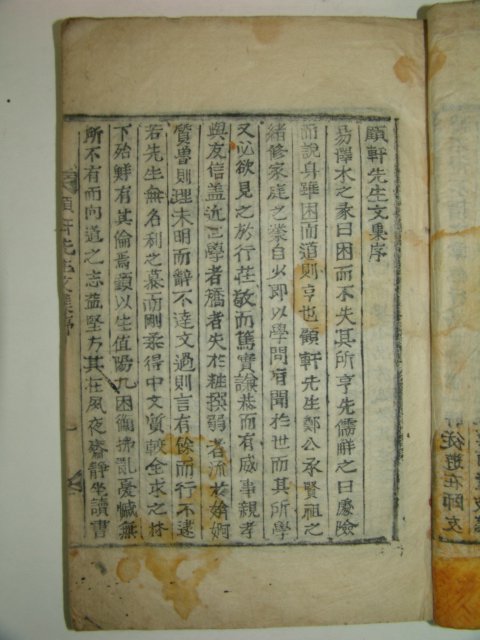 顧軒先生文集序
易澤水之彖曰困而不失其所亨先儒觧之曰處險
而說身雖困而道則亨也顧軒先生鄭公承賢祖之
緖修家庭之業自少即以學問有聞於世而其所學
又必欲見之於行莊敬而篤實謙恭而有威事親孝
與友信盖近世學者矯者失於粧撰弱者流於媕婀
質魯則理未明而辭不達文過則言有餘而行不逮
若先生無名利之慕而剛柔得中文質較全求之林
下殆鮮有其倫焉顧以生值陽九困衡拂亂憂慽無
所不有而向道之志益堅方其在夙夜齋靜坐讀書
顧軒先生文集序
從遊在師友